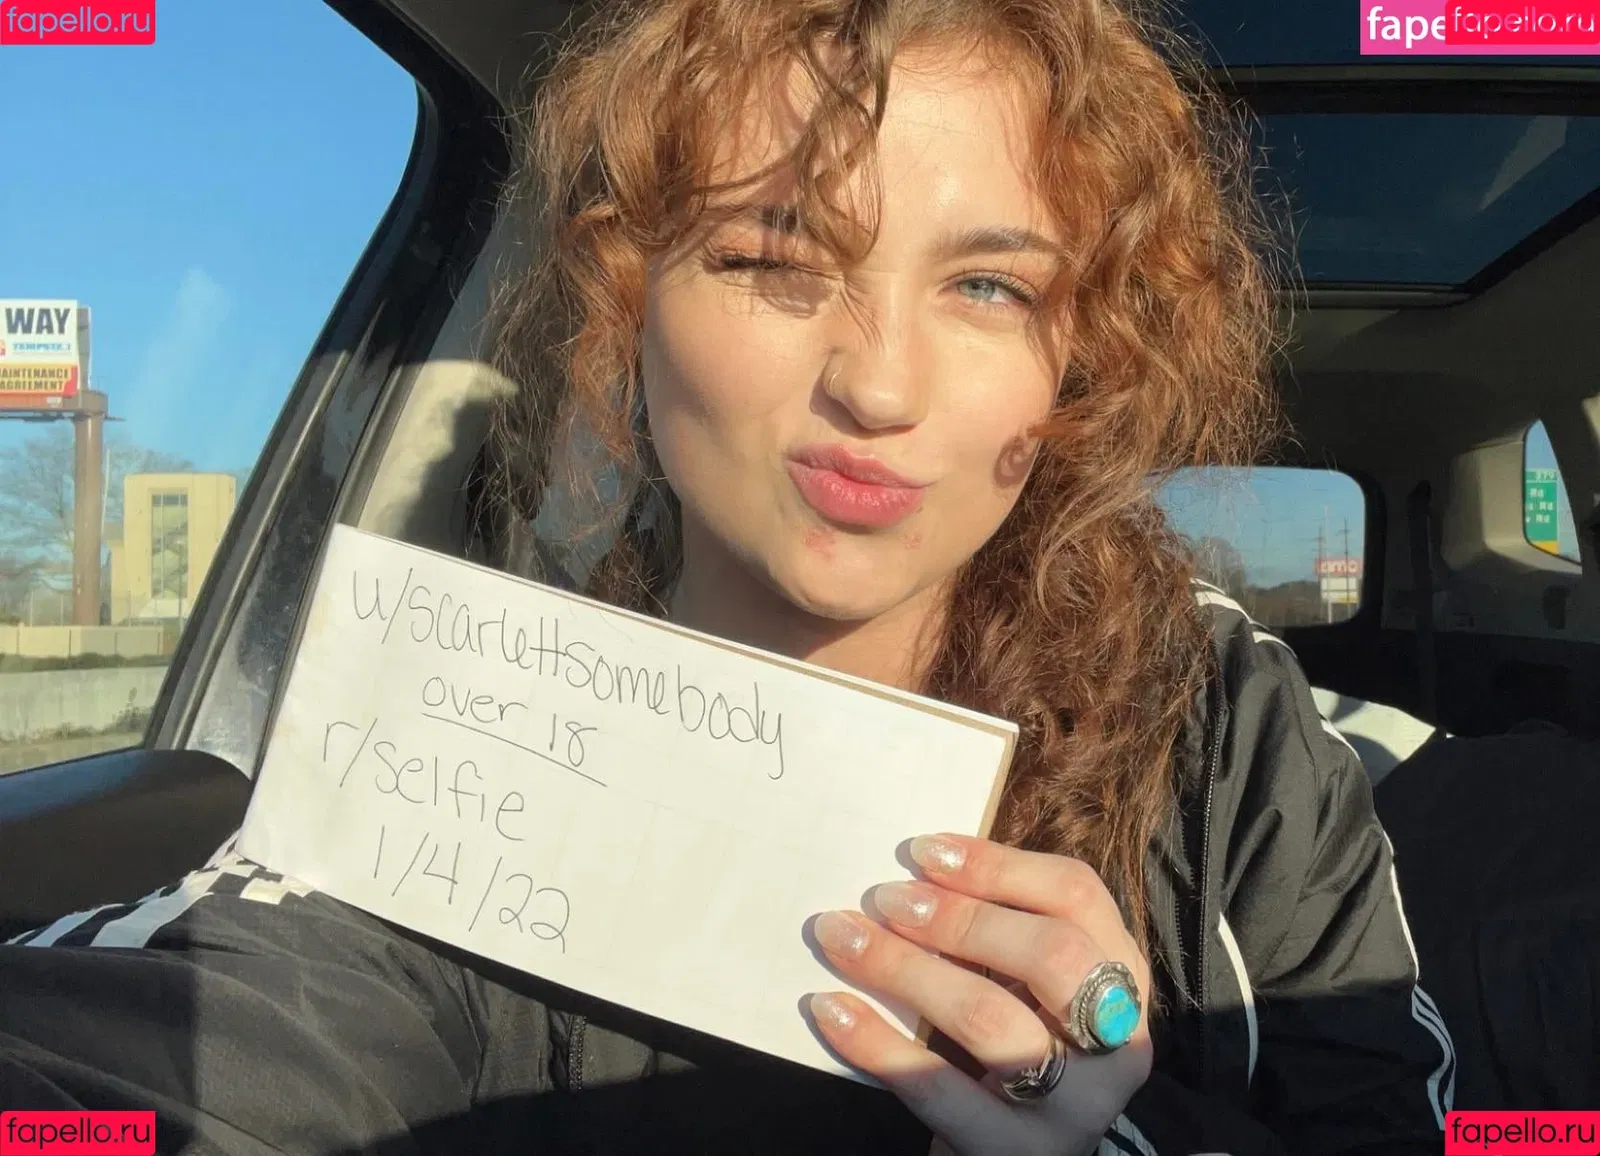 fapello.ru
fape
fapello.ru
WAY
TEMPSTAR
MAINTENANCE
AGREEMENT
u/scarlettsomebody
over 18
r/selfie
1/4/22
Rd
Rd
Rd
fapello.ru
fapello.ru